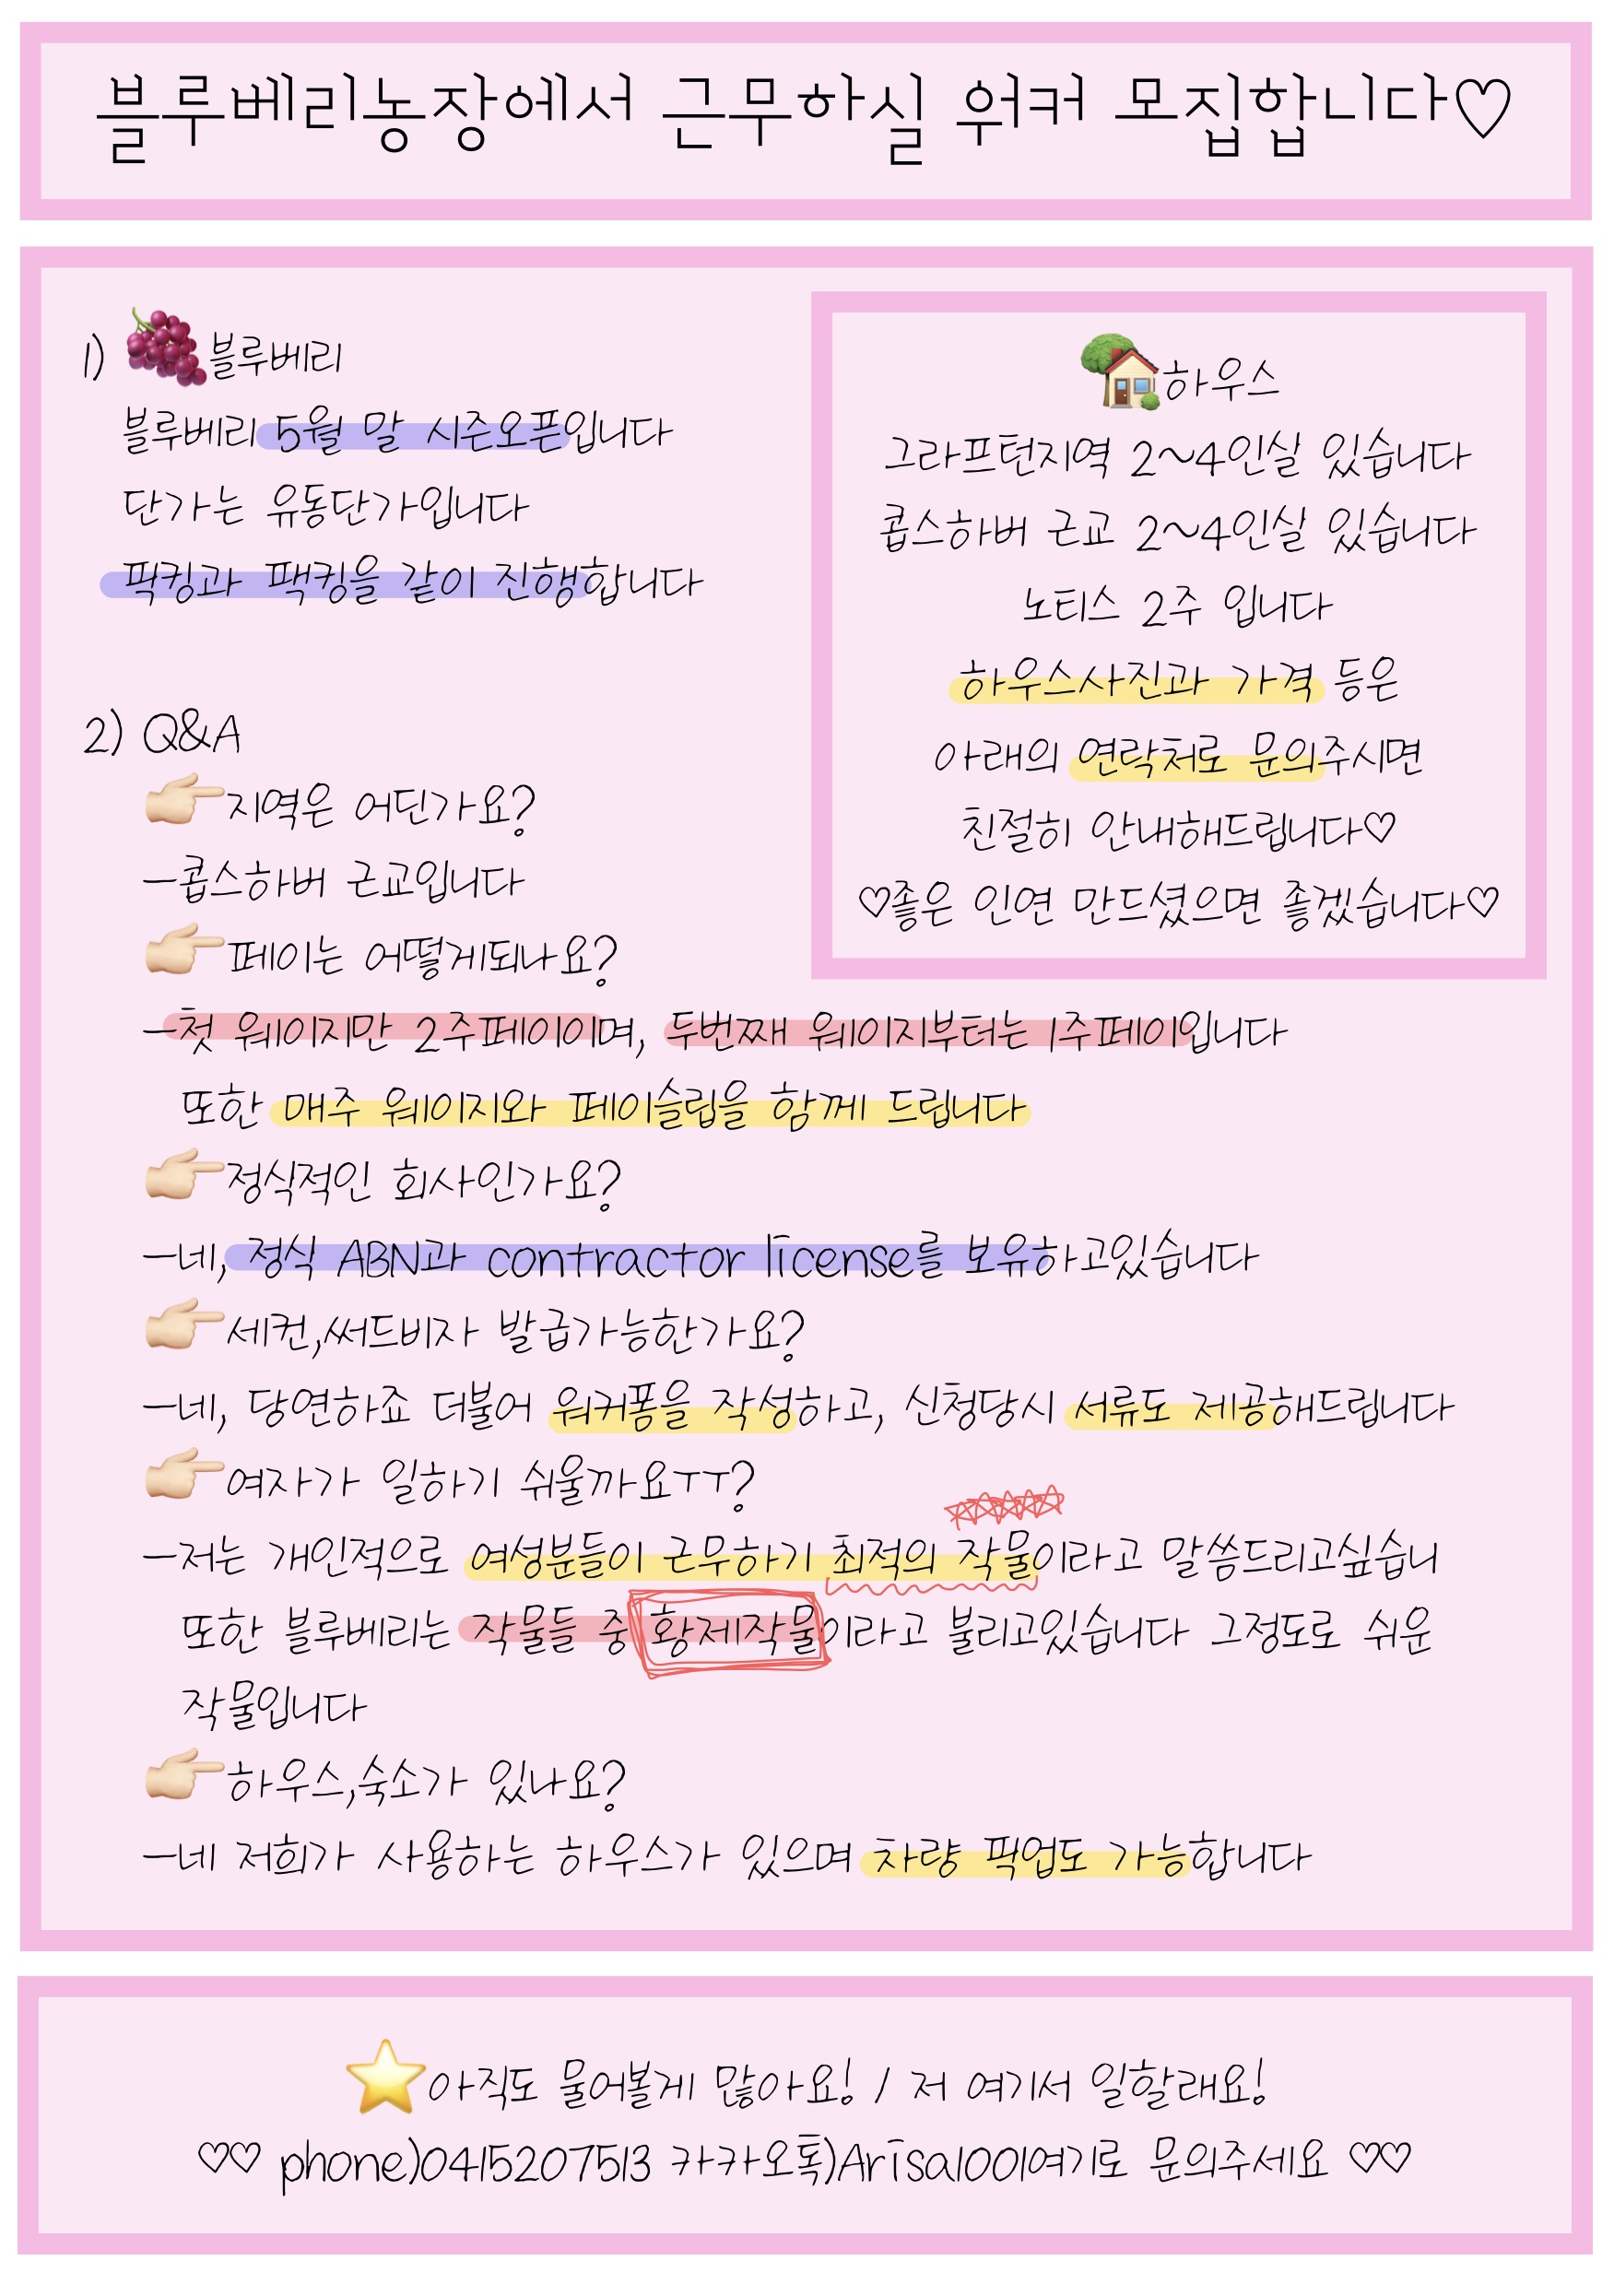 블루베리농장에서 근무하실 워커 모집합니다♡
1) 🍇블루베리
블루베리 5월 말 시즌오픈입니다
단가는 유동단가입니다
픽킹과 팩킹을 같이 진행합니다
🏡하우스
그라프턴지역 2~4인실 있습니다
콥스하버 근교 2~4인실 있습니다
노티스 2주 입니다
하우스사진과 가격 등은
아래의 연락처로 문의주시면
친절히 안내해드립니다♡
♡좋은 인연 만드셨으면 좋겠습니다♡
2) Q&A
👉지역은 어딘가요?
-콥스하버 근교입니다
👉페이는 어떻게되나요?
-첫 웨이지만 2주페이이며, 두번째 웨이지부터는 1주페이입니다
또한 매주 웨이지와 페이슬립을 함께 드립니다
👉정식적인 회사인가요?
-네, 정식 ABN과 contractor license를 보유하고있습니다
👉세컨,써드비자 발급가능한가요?
-네, 당연하죠 더불어 워커폼을 작성하고, 신청당시 서류도 제공해드립니다
👉여자가 일하기 쉬울까요ㅜㅜ?
-저는 개인적으로 여성분들이 근무하기 최적의 작물이라고 말씀드리고싶습니
또한 블루베리는 작물들 중 황제작물이라고 불리고있습니다 그정도로 쉬운
작물입니다
👉하우스,숙소가 있나요?
-네 저희가 사용하는 하우스가 있으며 차량 픽업도 가능합니다
⭐아직도 물어볼게 많아요! / 저 여기서 일할래요!
♡♡ phone)0415207513 카카오톡)Arisa1001여기로 문의주세요 ♡♡